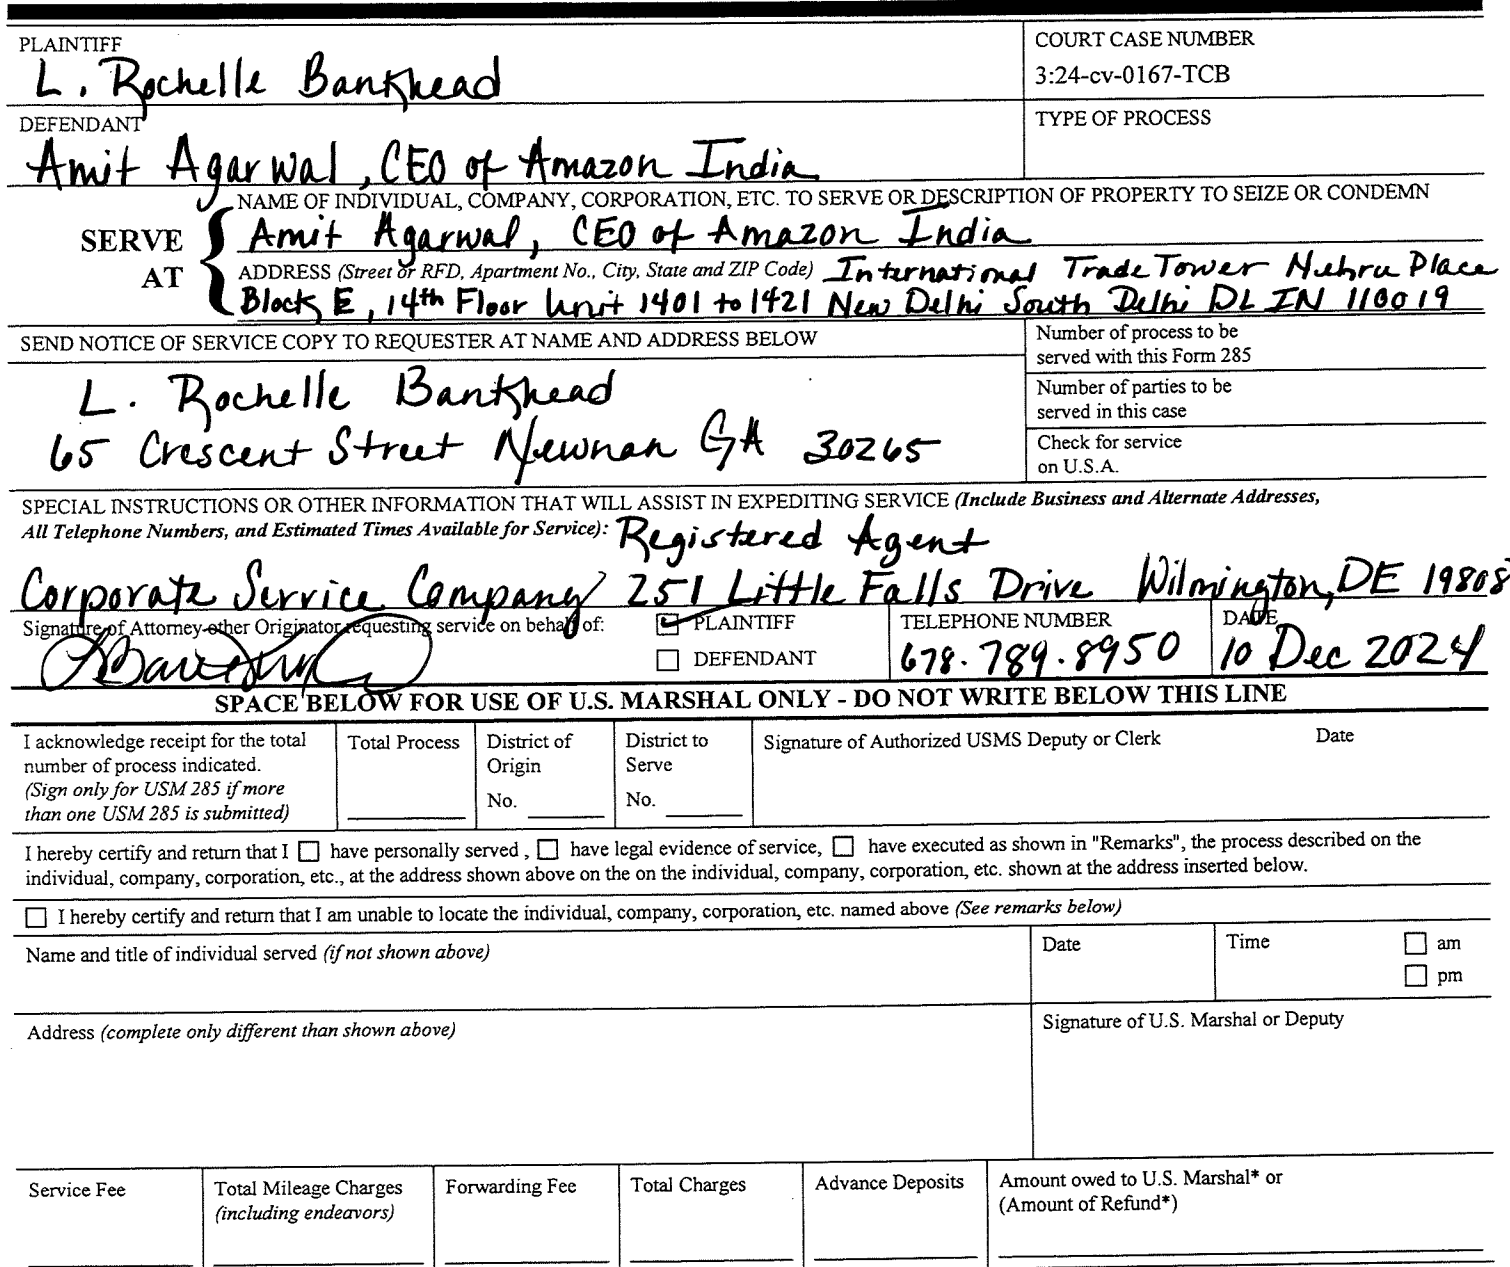 PLAINTIFF
L. Rochelle Bankhead
COURT CASE NUMBER
3:24-cv-0167-TCB
DEFENDANT
Amit Agarwal, CEO of Amazon India
TYPE OF PROCESS
SERVE AT
NAME OF INDIVIDUAL, COMPANY, CORPORATION, ETC. TO SERVE OR DESCRIPTION OF PROPERTY TO SEIZE OR CONDEMN
Amit Agarwal, CEO of Amazon India
ADDRESS (Street or RFD, Apartment No., City, State and ZIP Code) International Trade Tower Nehru Place
Block E, 14th Floor Unit 1401 to 1421 New Delhi South Delhi DL IN 110019
SEND NOTICE OF SERVICE COPY TO REQUESTER AT NAME AND ADDRESS BELOW
L. Rochelle Bankhead
65 Crescent Street Newnan GA 30265
Number of process to be
served with this Form 285
Number of parties to be
served in this case
Check for service
on U.S.A.
SPECIAL INSTRUCTIONS OR OTHER INFORMATION THAT WILL ASSIST IN EXPEDITING SERVICE (Include Business and Alternate Addresses,
All Telephone Numbers, and Estimated Times Available for Service): Registered Agent
Corporate Service Company 251 Little Falls Drive Wilmington, DE 19808
Signature of Attorney other Originator requesting service on behalf of:
PLAINTIFF
DEFENDANT
TELEPHONE NUMBER
678.789.8950
DATE
10 Dec 2024
SPACE BELOW FOR USE OF U.S. MARSHAL ONLY - DO NOT WRITE BELOW THIS LINE
I acknowledge receipt for the total
number of process indicated.
(Sign only for USM 285 if more
than one USM 285 is submitted)
Total Process
District of
Origin
No.
District to
Serve
No.
Signature of Authorized USMS Deputy or Clerk
Date
I hereby certify and return that I have personally served , have legal evidence of service, have executed as shown in "Remarks", the process described on the
individual, company, corporation, etc., at the address shown above on the on the individual, company, corporation, etc. shown at the address inserted below.
I hereby certify and return that I am unable to locate the individual, company, corporation, etc. named above (See remarks below)
Name and title of individual served (if not shown above)
Date
Time
am
pm
Address (complete only different than shown above)
Signature of U.S. Marshal or Deputy
Service Fee
Total Mileage Charges
(including endeavors)
Forwarding Fee
Total Charges
Advance Deposits
Amount owed to U.S. Marshal* or
(Amount of Refund*)